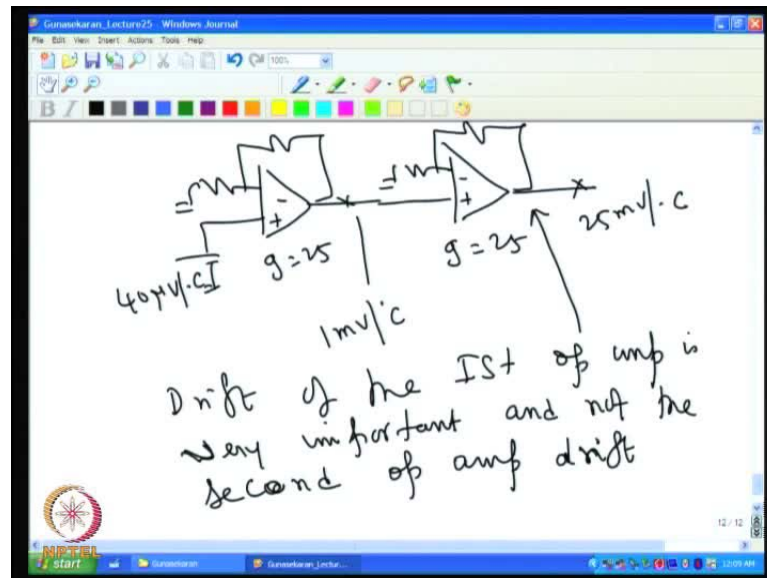 Gunasekaran_Lecture25 - Windows Journal
File Edit View Insert Actions Tools Help
100%
B I
- +
- +
40μV/°C
g=25
g=25
25mV/°C
1mV/°C
Drift of the Ist op amp is
very important and not the
second op amp drift
12 / 12
NPTEL
start
Gunasekaran
Gunasekaran_Lectur...
12:09 AM